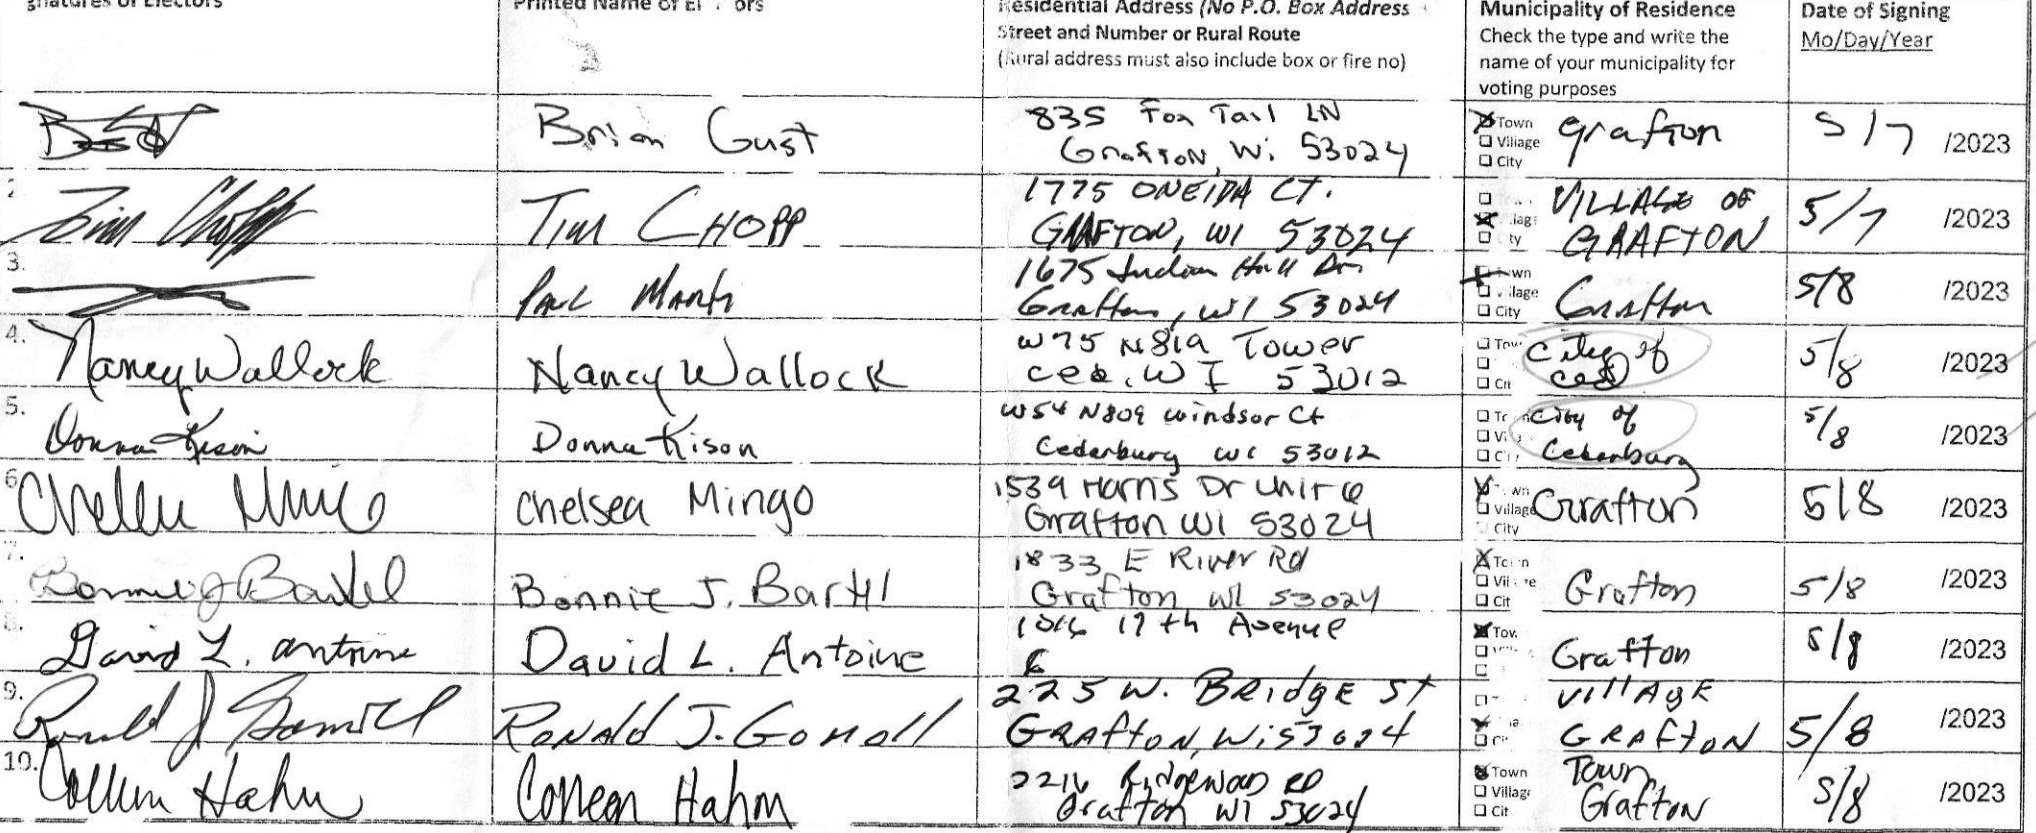 gnatures of Electors
Printed Name of El ors
Residential Address (No P.O. Box Address
Street and Number or Rural Route
(Rural address must also include box or fire no)
Municipality of Residence
Check the type and write the
name of your municipality for
voting purposes
Date of Signing
Mo/Day/Year
Brian Gust
835 Fox Tail LN
Grafton, Wi 53024
Town
Village
City
Grafton
5/7 /2023
2.
Tim Chopp
TIM CHOPP
1775 ONEIDA CT.
GRAFTON, WI 53024
VILLAGE OF
GRAFTON
5/7 /2023
3.
PAUL
1675 Indian Dr
Grafton, WI 53024
City
Grafton
5/8 /2023
4.
Nancy Wallock
Nancy Wallock
W75 N819 Tower
ced. WI 53012
City of
Ced
5/8 /2023
5.
Donna Kison
Donna Kison
W54 N809 Windsor Ct
Cedarburg WI 53012
City of
Cedarburg
5/8 /2023
6.
Chelsea Mingo
1539 Harris Dr Unit 6
Grafton WI 53024
Village
City
Grafton
5/8 /2023
7.
Bonnie J Bartel
Bonnie J. Bartel
1833 E River Rd
Grafton WI 53024
Grafton
5/8 /2023
8.
David L. Antoine
David L. Antoine
17th Avenue
Grafton
5/8 /2023
9.
Ronald J. Gomoll
225 W. BRIdgE St
GRAftoN, Wi 53024
VillAgE
GRAftoN
5/8 /2023
10.
Colleen Hahn
Colleen Hahn
2216 Ridgewood RD
Grafton WI 53024
Town
Village
Cit
Town
Grafton
5/8 /2023